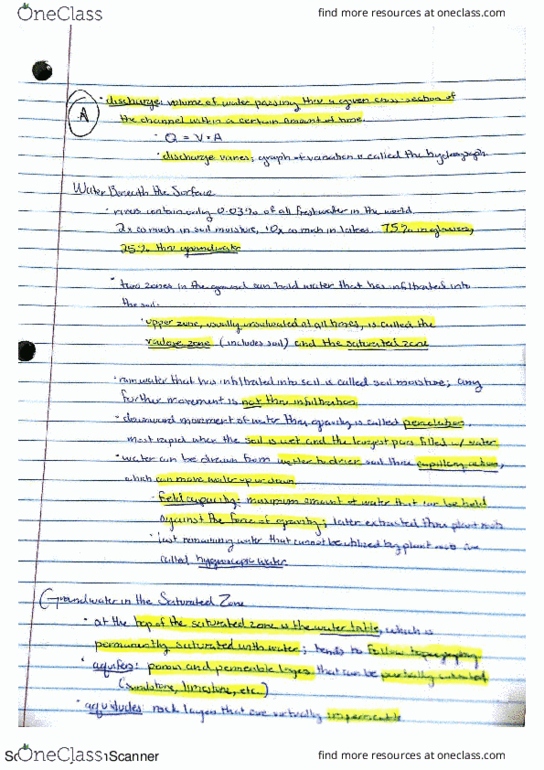 OneClass find more resources at oneclass.com
A
· discharge: volume of water passing thru a given cross-section of
the channel within a certain amount of time.
· Q = V * A
· discharge varies; graph of variation is called the hydrograph
Water Beneath the Surface
· rivers contain only 0.03% of all freshwater in the world.
2x as much in soil moisture, 10x as much in lakes. 75% in glaciers,
25% thru groundwater
· two zones in the ground can hold water that has infiltrated into
the soil:
· upper zone, usually unsaturated at all times, is called the
vadose zone (includes soil) and the saturated zone
· rainwater that has infiltrated into soil is called soil moisture; any
further movement is not thru infiltration
· downward movement of water thru gravity is called percolation.
most rapid when the soil is wet and the largest pores filled w/ water
· water can be drawn from wetter to drier soil thru capillary action,
which can move water up or down
· field capacity: maximum amount of water that can be held
against the force of gravity; later extracted thru plant roots
· last remaining water that cannot be utilized by plant roots are
called hygroscopic water.
Groundwater in the Saturated Zone
· at the top of the saturated zone is the water table, which is
permanently saturated with water; tends to follow topography
· aquifers: porous and permeable layers that can be partially saturated
(sandstone, limestone, etc.)
· aquicludes: rock layers that are virtually impermeable
OneClass Scanner find more resources at oneclass.com